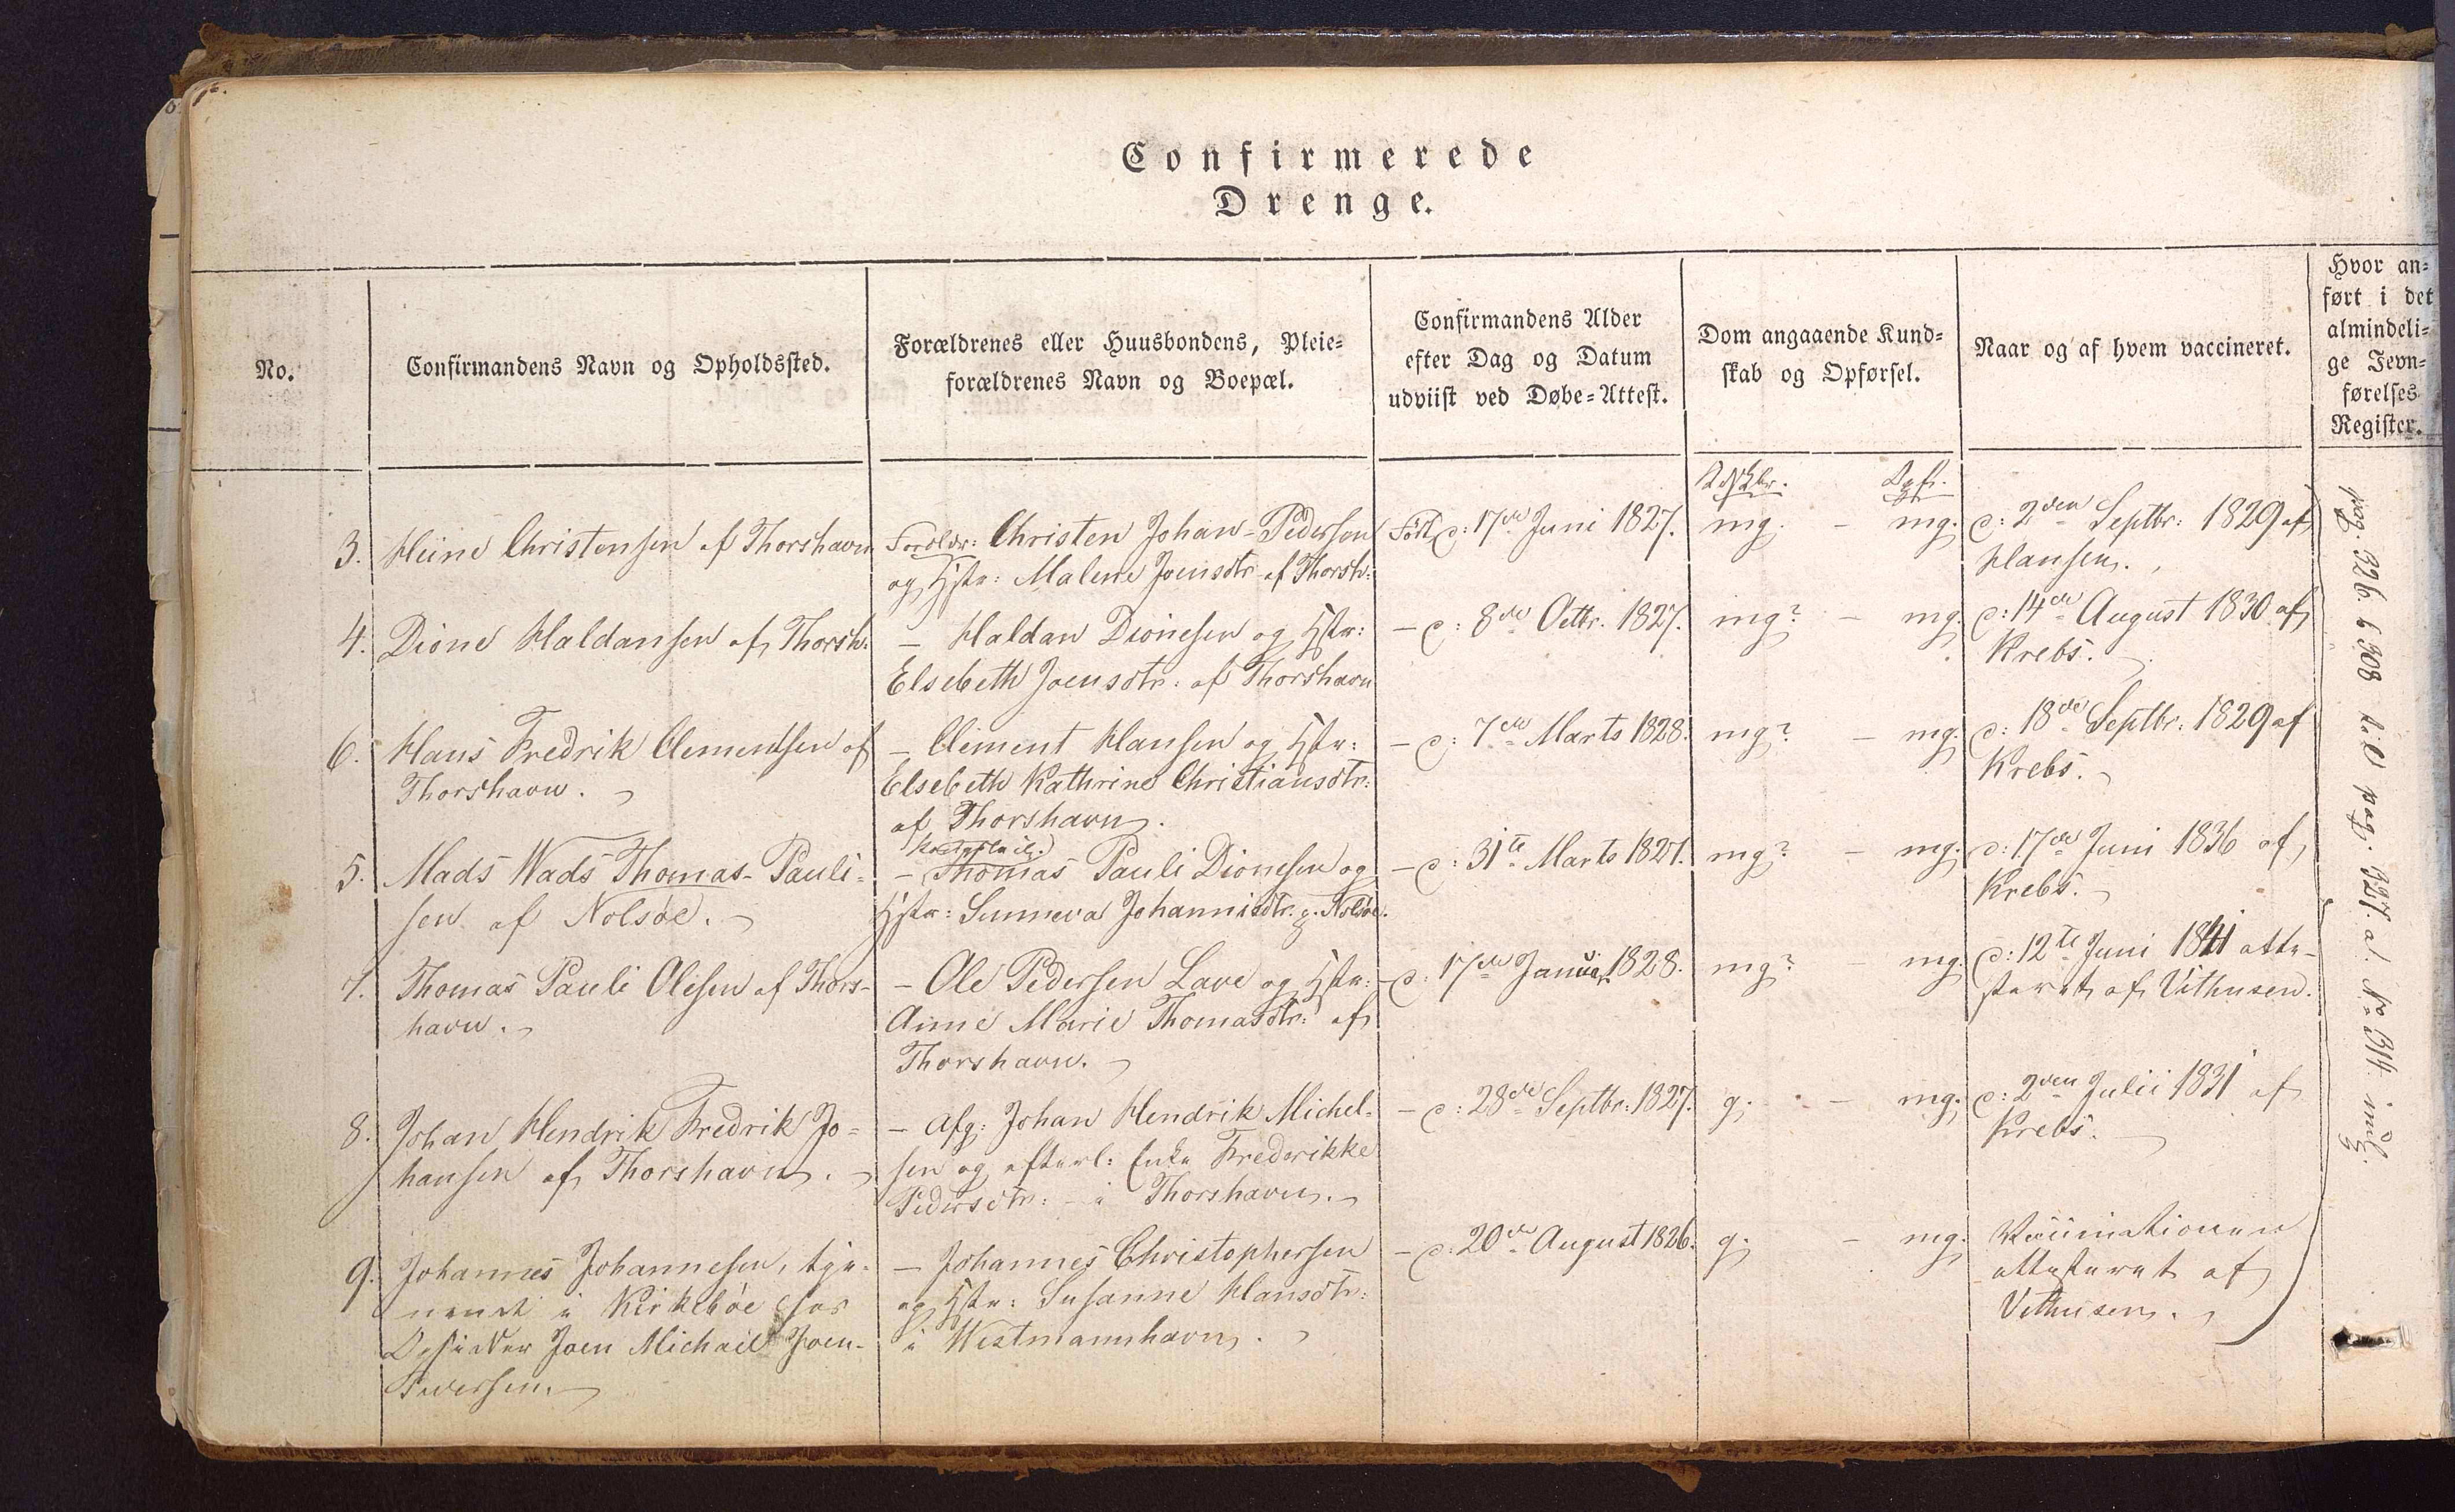 Confirmerede
Drenge.
No.
Confirmandens Navn og Opholdssted.
Forældrenes eller Huusbondens, Pleie-
forældrenes Navn og Boepæl.
Confirmandens Alder
efter Dag og Datum
udviist ved Døbe-Attest.
Dom angaaende Kund-
skab og Opførsel.
Naar og af hvem vaccineret.
Hvor an-
ført i det
almindeli-
ge Jevn-
førelses
Register.
3.
Heine Christensen af Thorshavn
Forældr: Christen Johan-Pedersen
og Hstr: Malene Joensdtr af Thorsh:
Født d: 17de Juni 1827.
mg. - mg.
d: 2den Septbr: 1829 af
Hansen.
4.
Dione Haldansen af Thorsh:
- Haldan Dionesen og Hstr:
Elsebeth Joensdtr: af Thorshavn
- d: 8de Octbr. 1827.
mg? - mg.
d: 14de August 1830 af
Krebs.
6.
Hans Fredrik Clementsen af
Thorshavn.
- Clement Hansen og Hstr:
Elsebeth Kathrine Christiansdtr:
af Thorshavn.
- d: 7de Marts 1828.
mg? - mg.
d: 18de Septbr: 1829 af
Krebs.
5.
Mads Wads Thomas-Pauli-
sen af Nolsöe.
- Thomas Pauli Dionesen og
Hstr: Sunneva Johannisdtr. Nolsöe.
- d: 31te Marts 1827.
mg? - mg.
d: 17de Juni 1836 af
Krebs.
7.
Thomas Pauli Olesen af Thors-
havn.
- Ole Pedersen Lave og Hstr:
Anne Marie Thomasdtr: af
Thorshavn.
- d: 17de Januar 1828.
mg? - mg.
d: 12te Juni 1841 atte-
steret af Vithusen.
8.
Johan Hendrik Fredrik Jo-
hansen af Thorshavn.
- Afg: Johan Hendrik Michel-
sen og efterl: Enke Frederikke
Pedersdtr: - i Thorshavn.
- d: 28de Septbr: 1827.
g. - mg.
d: 2den Julii 1831 af
Krebs.
9.
Johannes Johannesen, tje-
nende i Kirkeböe hos
Joen Michael Joen-
Pedersen.
- Johannes Christophersen
og Hstr: Susanne Hansdtr:
i Westmannhavn.
- d: 20de August 1826.
g. - mg.
Vaccinationen
attesteret af
Vithusen.